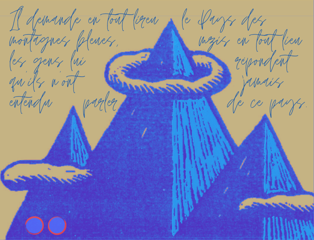 Il demande en tout lieu le Pays des
montagnes bleues, mais en tout lieu
les gens lui repondent
qu'ils n'ont jamais
entendu parler de ce pays